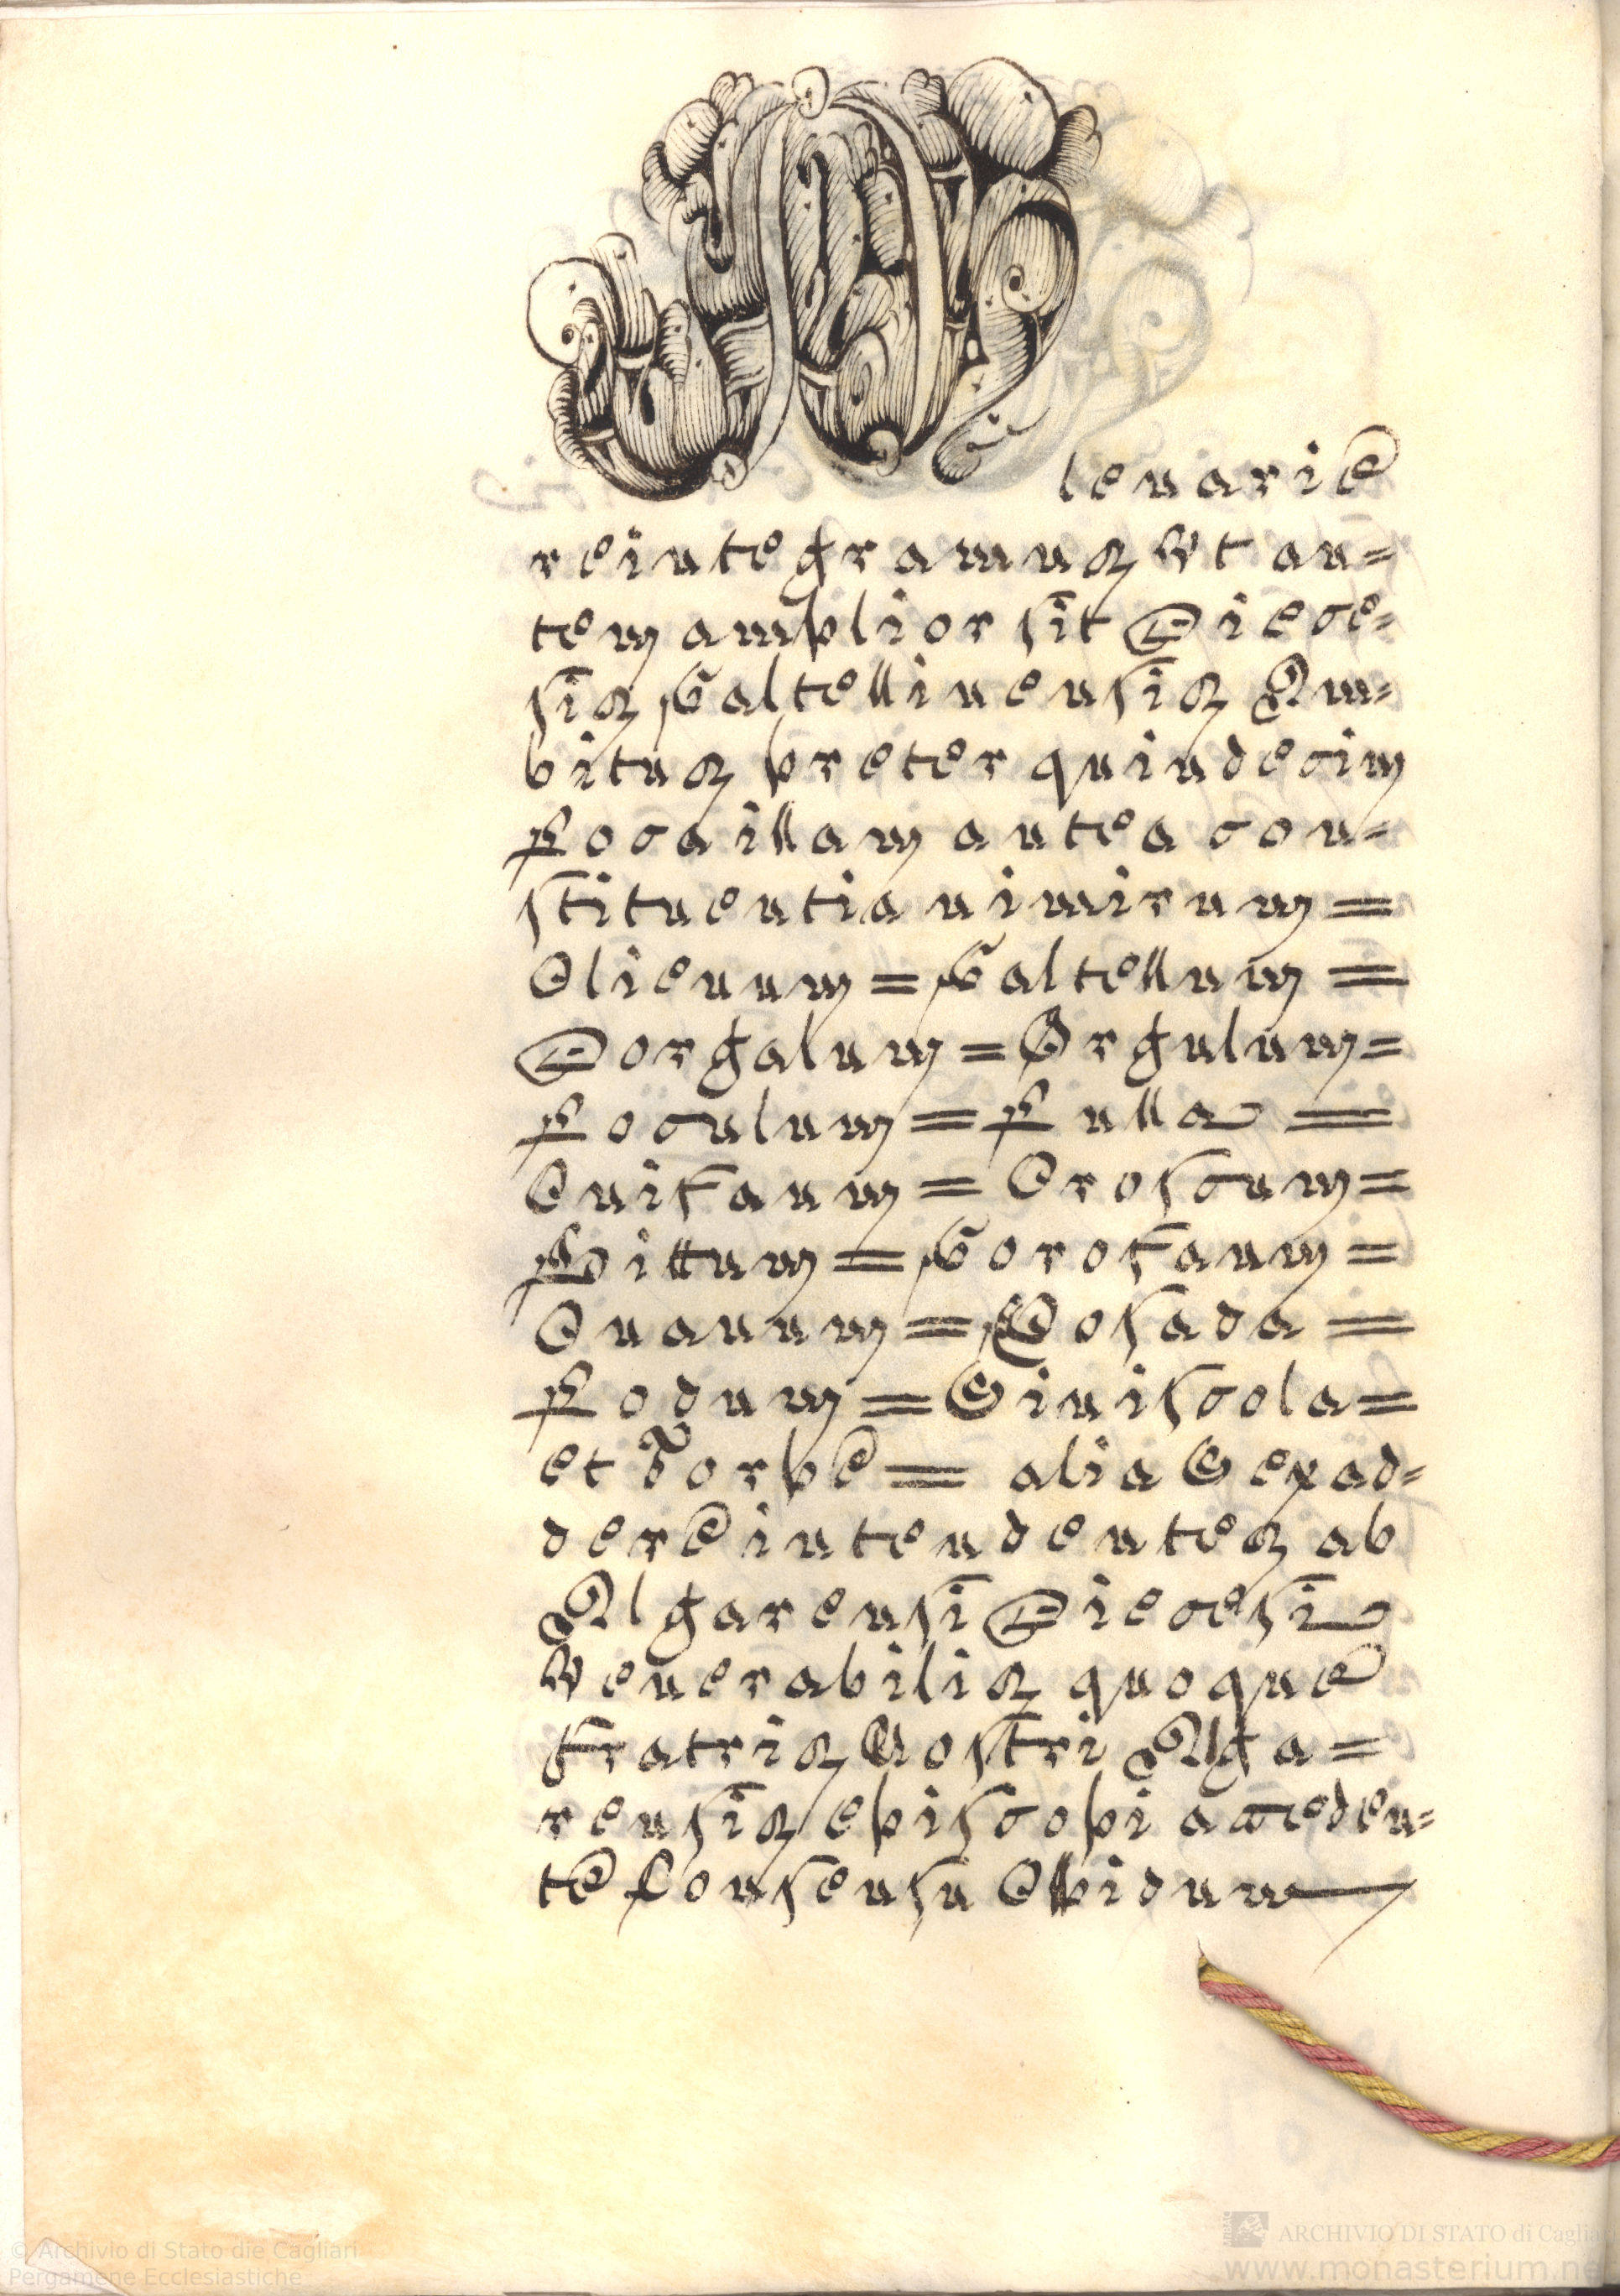 lenarie
reintegramus Vt au=
tem amplior sit Diece=
sis Galtellinensis Am=
bitus preter quindecim
Loca illam antea con=
stituentia nimirum =
Olienum = Galtellum =
Dorgalum = Orgulum =
Loculum = Lulla =
Onifaum = Oroscum =
Bittum = Gorofaum =
Onanum = Posada =
Lodum = Siniscola =
et Torpe = alia Sexad=
dere intendentes ab
Algarensi Diecesi
Venerabilis quoque
Fratris Nostri Alga=
rensis episcopi acceden=
te Consensu Oppidum
© Archivio di Stato die Cagliari
Pergamene Ecclesiastiche
ARCHIVIO DI STATO di Cagliari
www.monasterium.ne